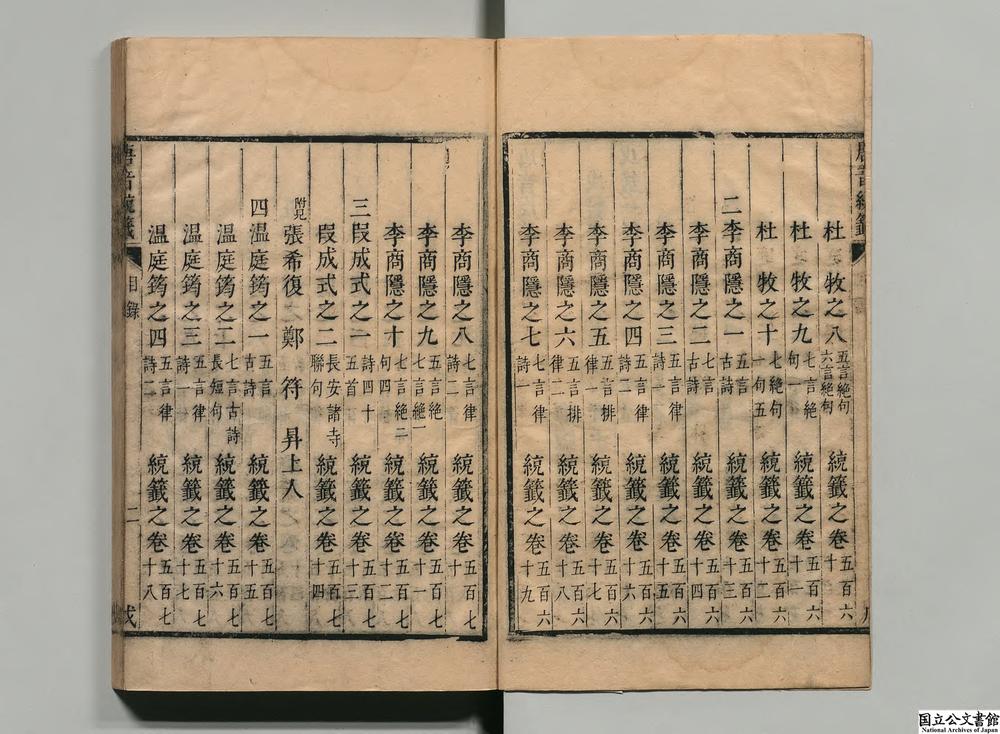 唐音統籤
杜牧之八 五言絕句六言絕句 統籤之卷五百六十
杜牧之九 七言絕句一 統籤之卷五百六十一
杜牧之十 七絕句一句五 統籤之卷五百六十二
二李商隱之一 五言古詩 統籤之卷五百六十三
李商隱之二 七言古詩 統籤之卷五百六十四
李商隱之三 五言律詩一 統籤之卷五百六十五
李商隱之四 五言律詩二 統籤之卷五百六十六
李商隱之五 五言排律一 統籤之卷五百六十七
李商隱之六 五言排律二 統籤之卷五百六十八
李商隱之七 七言律詩一 統籤之卷五百六十九
李商隱之八 七言律詩二 統籤之卷五百七十
李商隱之九 五言絕七言絕一 統籤之卷五百七十一
李商隱之十 七言絕二句四 統籤之卷五百七十二
三段成式之一 詩四十五首 統籤之卷五百七十三
段成式之二 長安諸寺聯句 統籤之卷五百七十四
附見張希復 鄭符 昇上人
四温庭筠之一 五言古詩 統籤之卷五百七十五
温庭筠之二 七言古詩長短句 統籤之卷五百七十六
温庭筠之三 五言律詩一 統籤之卷五百七十七
温庭筠之四 五言律詩二 統籤之卷五百七十八
唐音統籤 目錄 二 戊
国立公文書館
National Archives of Japan